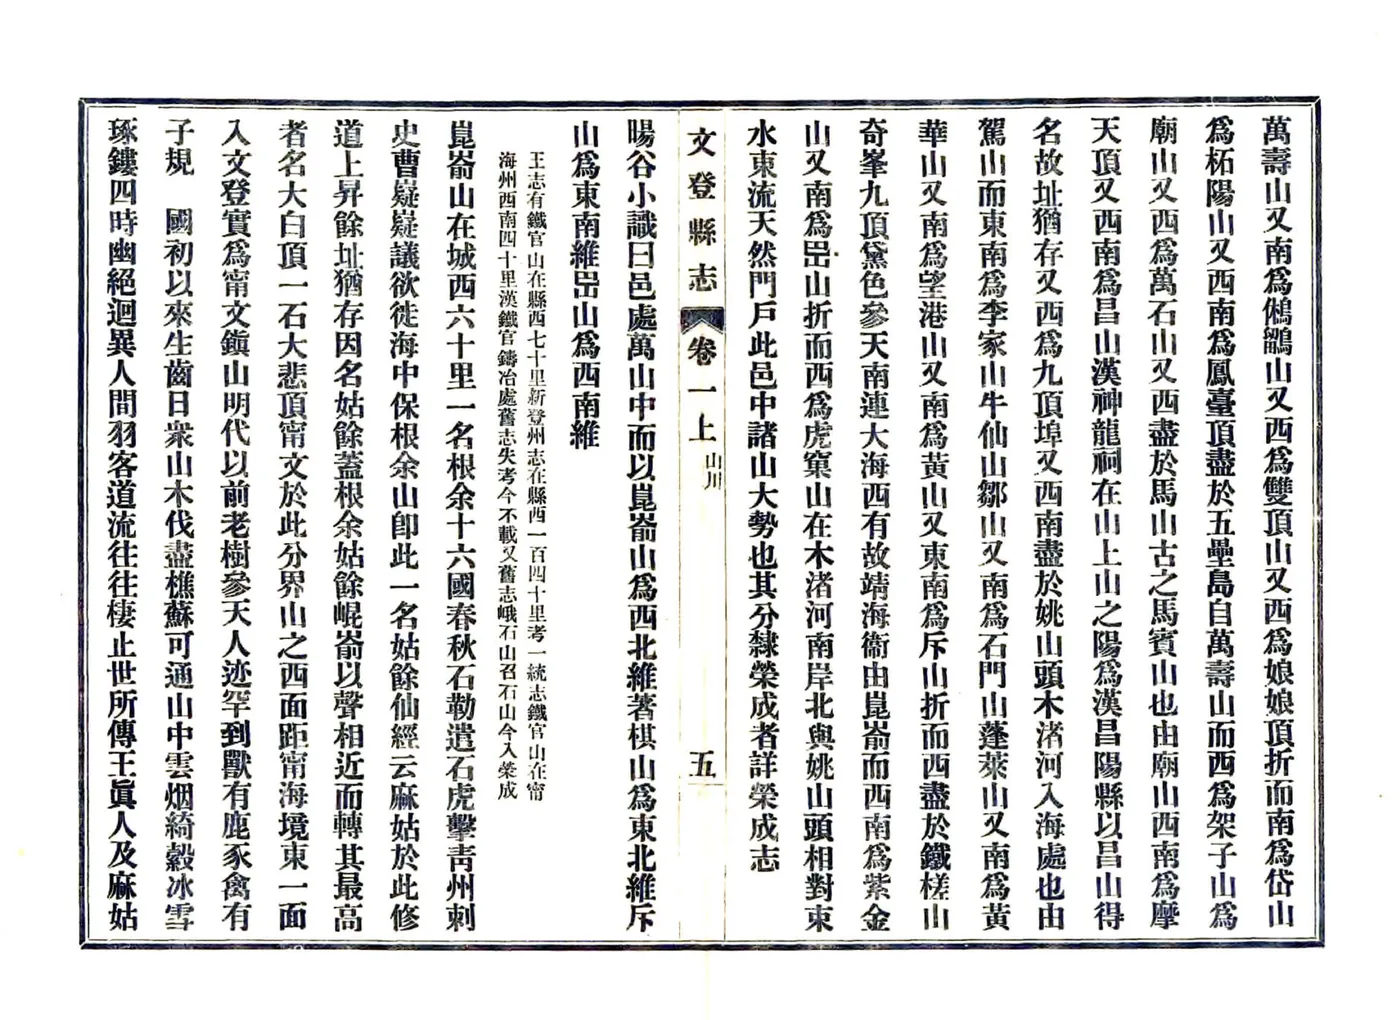 萬壽山又南爲鵂鶹山又西爲雙頂山又西爲娘娘頂折而南爲岱山
爲柘陽山又西南爲鳳臺頂盡於五壘島自萬壽山而西爲架子山爲
廟山又西爲萬石山又西盡於馬山古之馬賓山也由廟山西南爲摩
天頂又西南爲昌山漢神龍祠在山上山之陽爲漢昌陽縣以昌山得
名故址猶存又西爲九頂埠又西南盡於姚山頭木渚河入海處也由
駕山而東南爲李家山牛仙山鄒山又南爲石門山蓬萊山又南爲黃
華山又南爲望港山又南爲黃山又東南爲斥山折而西盡於鐵槎山
奇峯九頂黛色參天南連大海西有故靖海衞由崑嵛而西南爲紫金
山又南爲岊山折而西爲虎窠山在木渚河南岸北與姚山頭相對東
水東流天然門戶此邑中諸山大勢也其分隸榮成者詳榮成志
文登縣志 卷一上 山川 五
暘谷小識曰邑處萬山中而以崑嵛山爲西北維著棋山爲東北維斥
山爲東南維岊山爲西南維
王志有鐵官山在縣西七十里新登州志在縣西一百四十里考一統志鐵官山在甯
海州西南四十里漢鐵官鑄冶處舊志失考今不載又舊志峨石山召石山今入榮成
崑嵛山在城西六十里一名根余十六國春秋石勒遣石虎擊靑州刺
史曹嶷嶷議欲徙海中保根余山卽此一名姑餘仙經云麻姑於此修
道上昇餘址猶存因名姑餘蓋根余姑餘崐嵛以聲相近而轉其最高
者名大白頂一石大悲頂甯文於此分界山之西面距甯海境東一面
入文登實爲甯文鎭山明代以前老樹參天人迹罕到獸有鹿豕禽有
子規　國初以來生齒日衆山木伐盡樵蘇可通山中雲烟綺縠冰雪
琢鏤四時幽絕迴異人間羽客道流往往棲止世所傳王眞人及麻姑